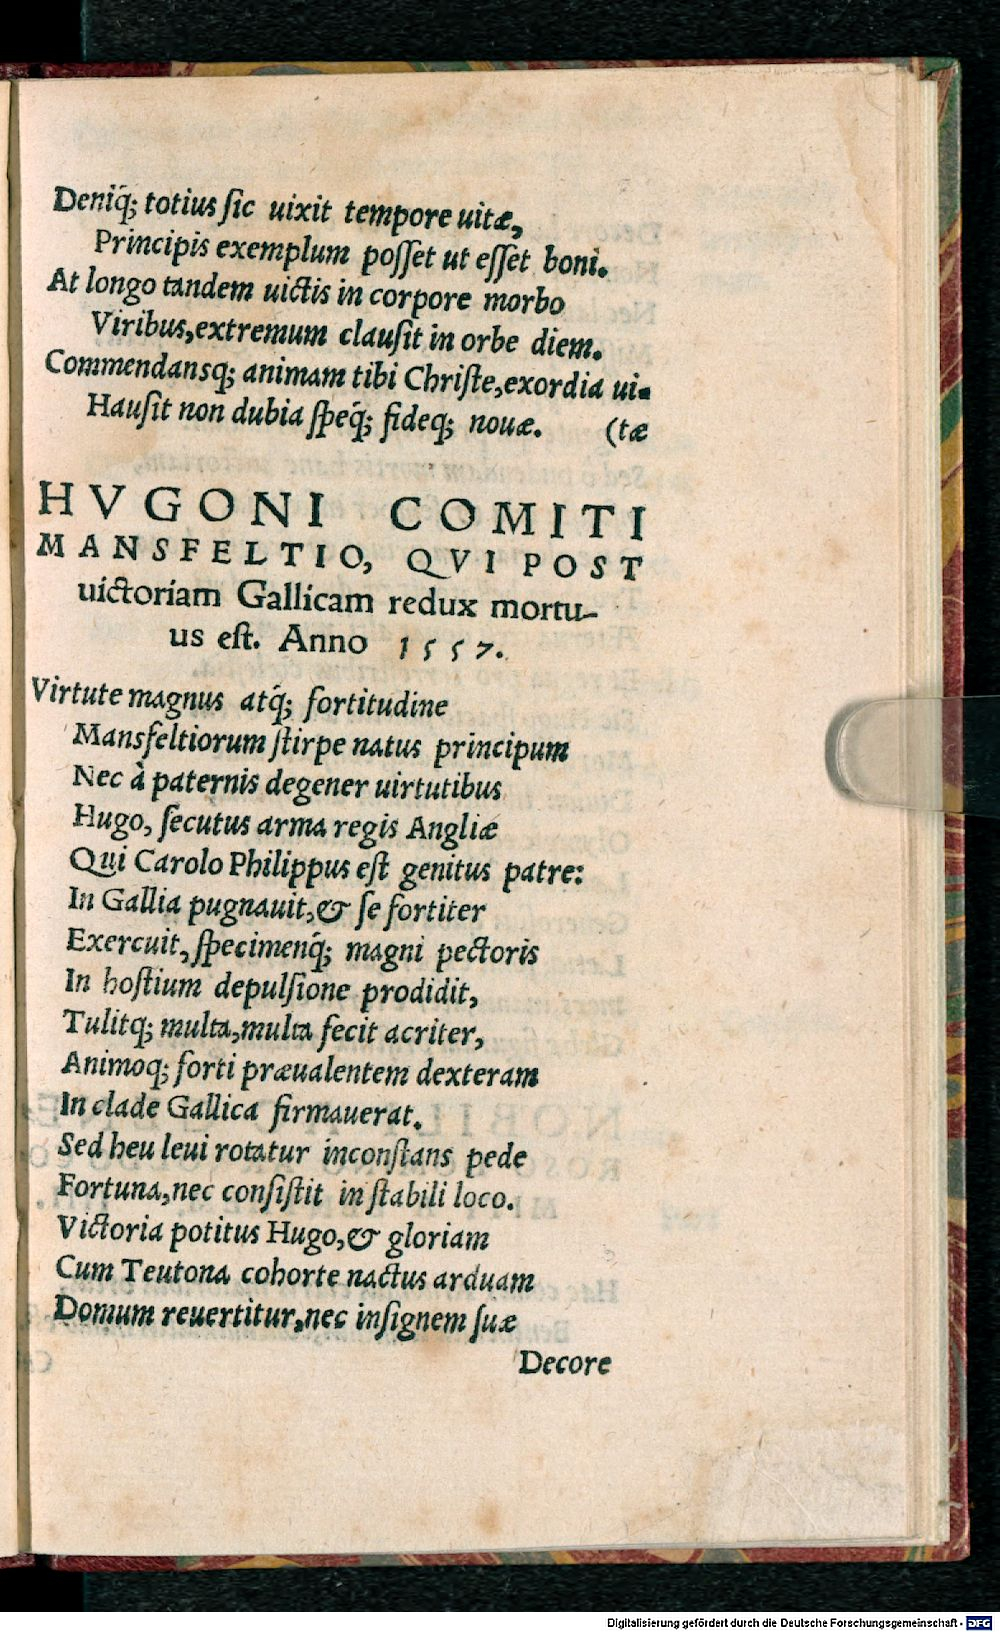 Deniq́; totius ſic uixit tempore uitæ,
Principis exemplum poſſet ut eſſet boni.
At longo tandem uictis in corpore morbo
Viribus, extremum clauſit in orbe diem.
Commendansq; animam tibi Chriſte, exordia ui-
Hauſit non dubia ſpeq́; fideq; nouæ. (tæ
HVGONI COMITI
MANSFELTIO, QVI POST
uictoriam Gallicam redux mortu-
us eſt. Anno 1557.
Virtute magnus atq́; fortitudine
Mansfeltiorum ſtirpe natus principum
Nec à paternis degener uirtutibus
Hugo, ſecutus arma regis Angliæ
Qui Carolo Philippus eſt genitus patre:
In Gallia pugnauit, & ſe fortiter
Exercuit, ſpecimenq́; magni pectoris
In hoſtium depulſione prodidit,
Tulitq; multa, multa fecit acriter,
Animoq; forti præualentem dexteram
In clade Gallica firmauerat.
Sed heu leui rotatur inconſtans pede
Fortuna, nec conſiſtit in ſtabili loco.
Victoria potitus Hugo, & gloriam
Cum Teutona cohorte nactus arduam
Domum reuertitur, nec inſignem ſuæ
Decore
Digitalisierung gefördert durch die Deutsche Forschungsgemeinschaft - DFG